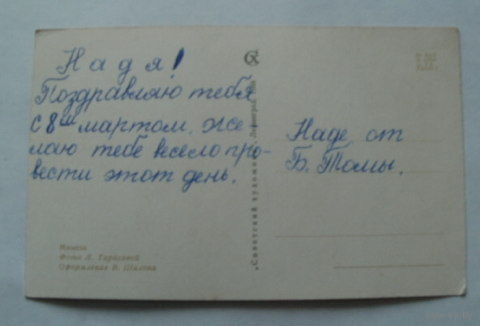 Надя!
Поздравляю тебя
с 8ым мартом, же
лаю тебе весело про-
вести этот день.
Наде от
Б. Томы.
Мимоза
Фото Л.
Оформление В.
"Советский художник" Ленинград